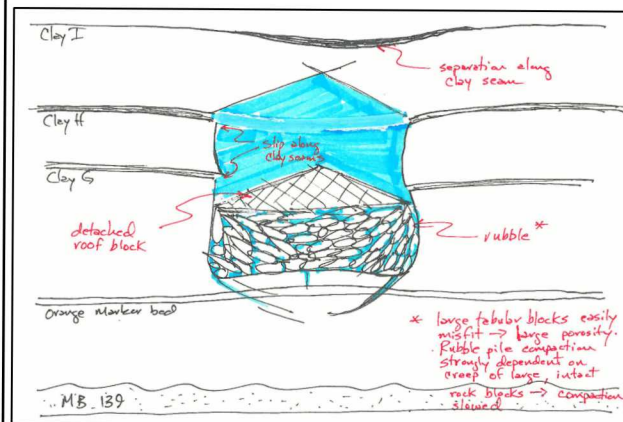 Clay I
separation along
clay seam
Clay H
slip along
clay seams
Clay G
detached
roof block
rubble *
Orange Marker bed
* large tabular blocks easily
misfit → large porosity.
Rubble pile compaction
strongly dependent on
creep of large, intact
rock blocks → compaction
slowed
MB 139